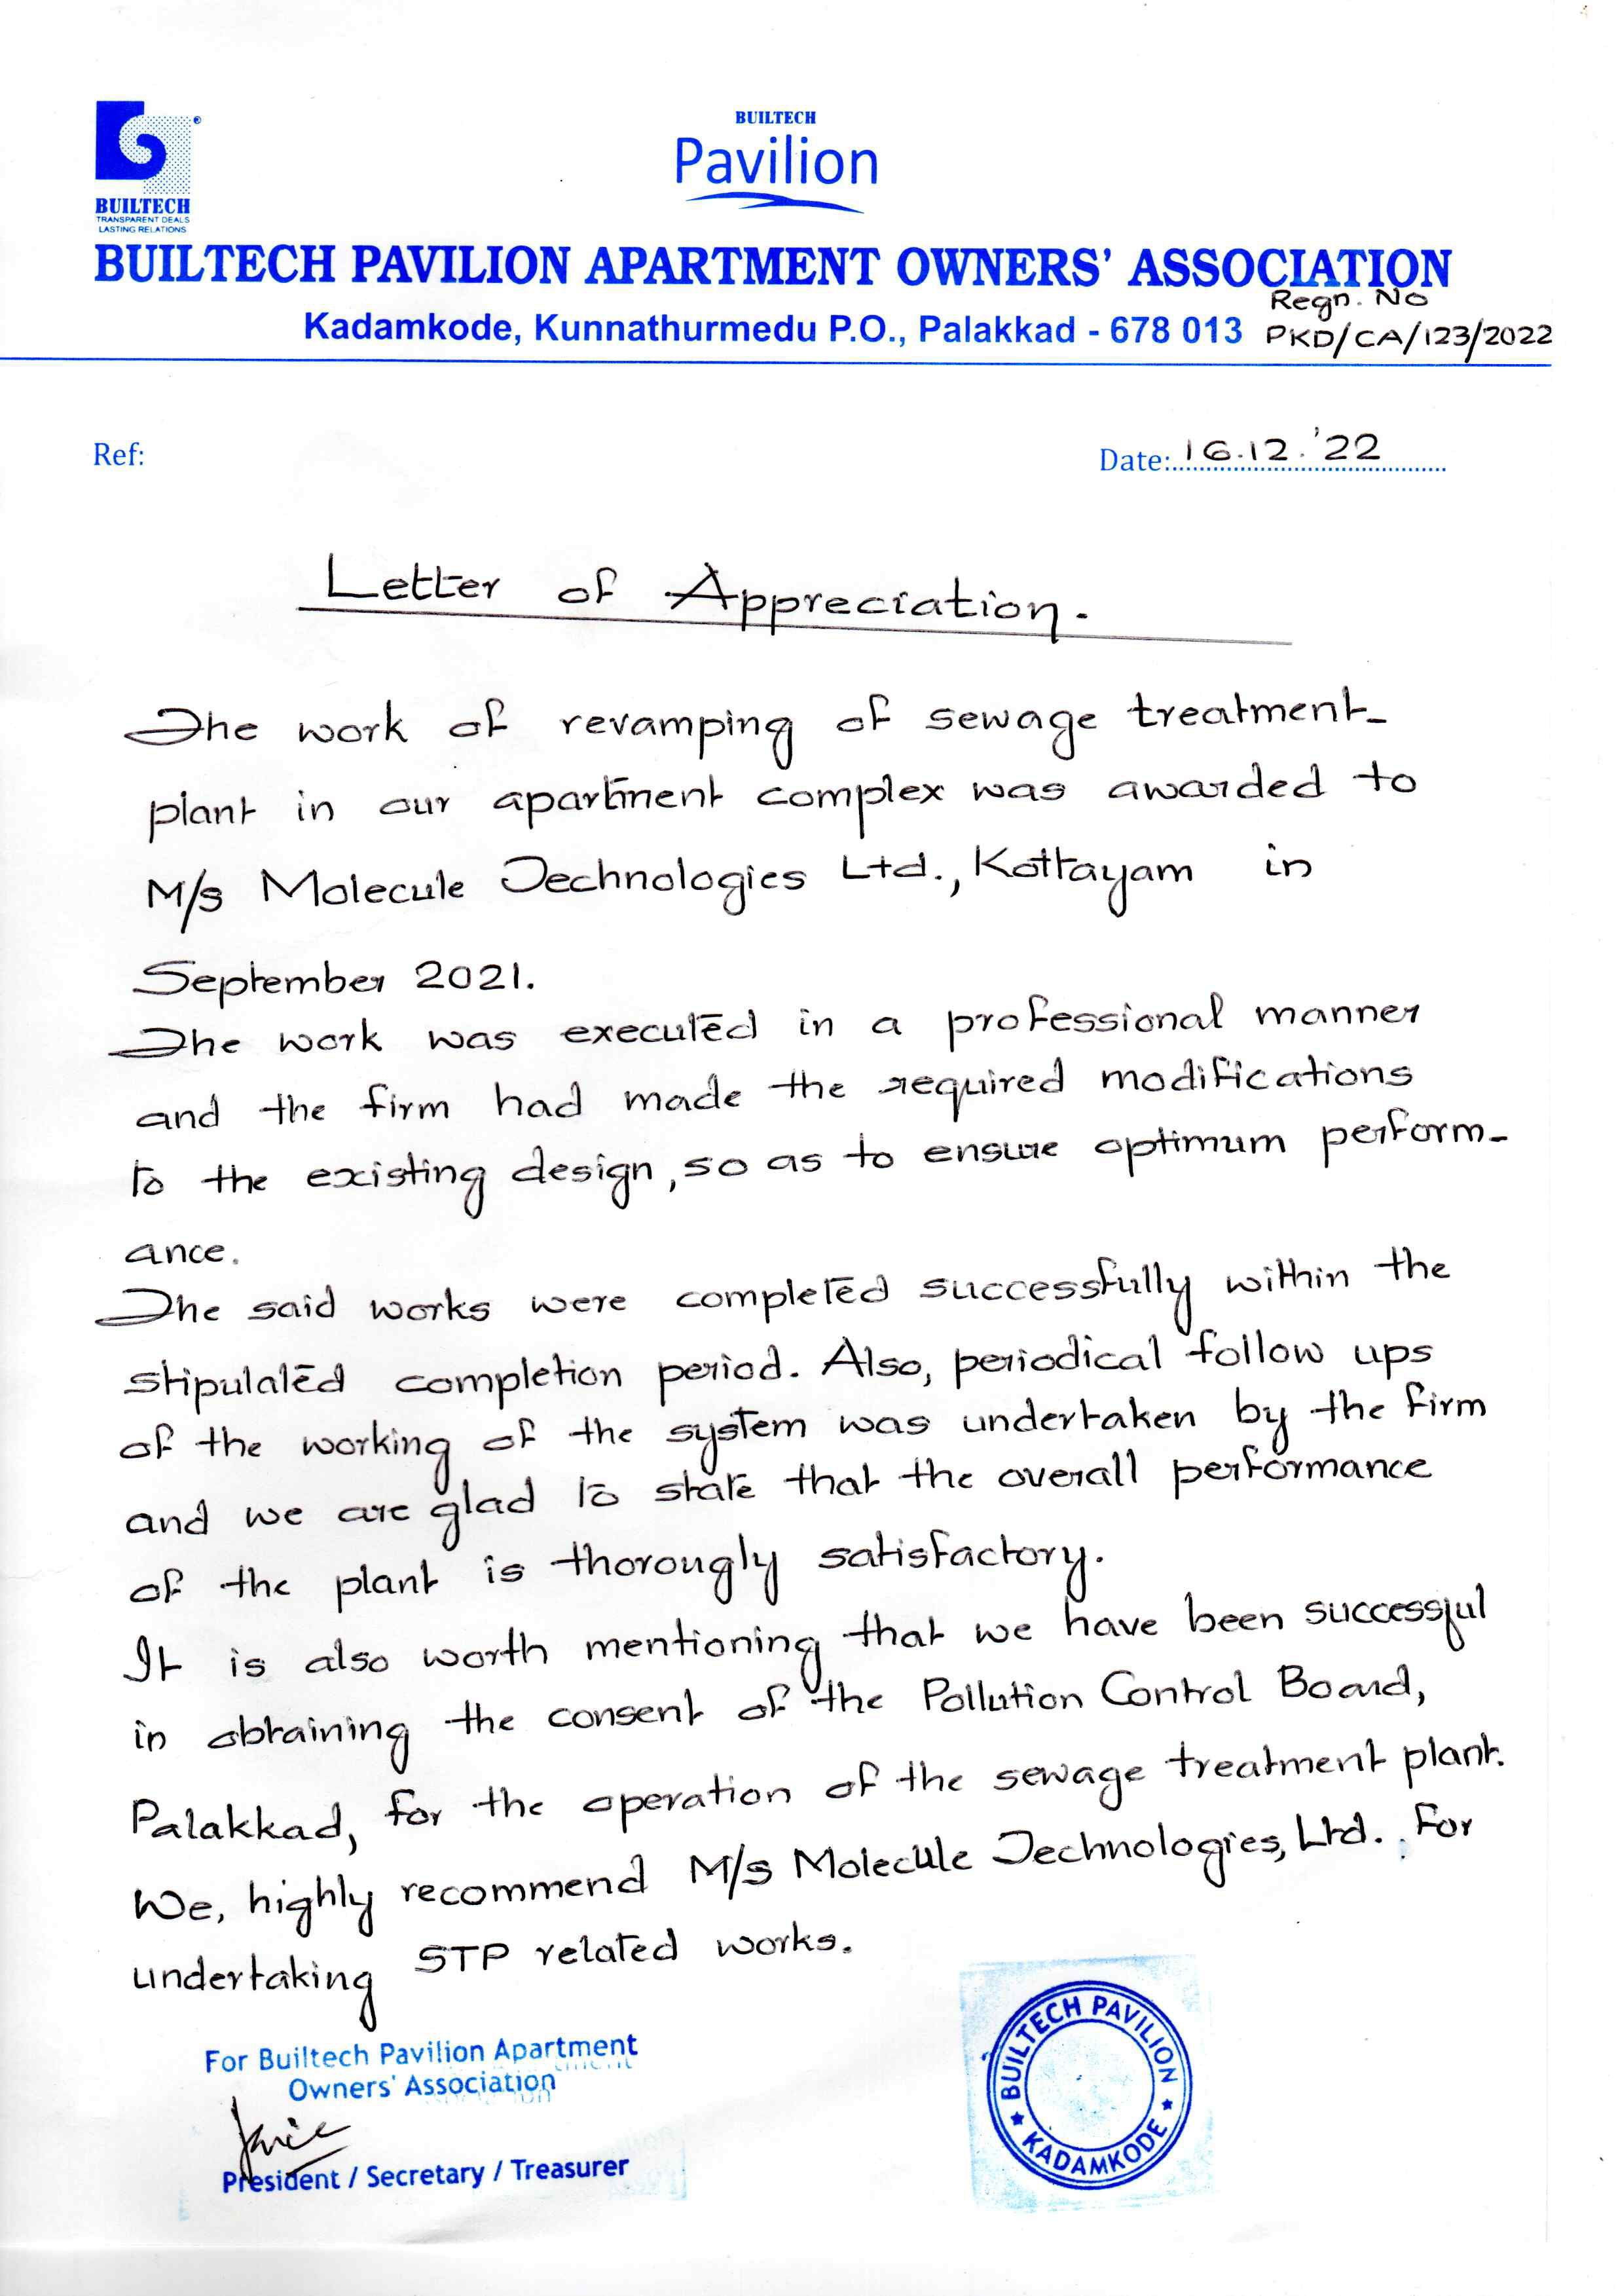 BUILTECH
TRANSPARENT DEALS
LASTING RELATIONS
BUILTECH
Pavilion
BUILTECH PAVILION APARTMENT OWNERS' ASSOCIATION
Regn. No
Kadamkode, Kunnathurmedu P.O., Palakkad - 678 013 PKD/CA/123/2022
Ref:
Date: 16.12.'22
Letter of Appreciation.
The work of revamping of sewage treatment
plant in our apartment complex was awarded to
M/s Molecule Technologies Ltd., Kottayam in
September 2021.
The work was executed in a professional manner
and the firm had made the required modifications
to the existing design, so as to ensure optimum perform-
ance.
The said works were completed successfully within the
stipulated completion period. Also, periodical follow ups
of the working of the system was undertaken by the firm
and we are glad to state that the overall performance
of the plant is thorougly satisfactory.
It is also worth mentioning that we have been successful
in obtaining the consent of the Pollution Control Board,
Palakkad, for the operation of the sewage treatment plant.
We, highly recommend M/s Molecule Technologies, Ltd. For
undertaking STP related works.
For Builtech Pavilion Apartment
Owners' Association
President / Secretary / Treasurer
BUILTECH PAVILION
★ KADAMKODE ★